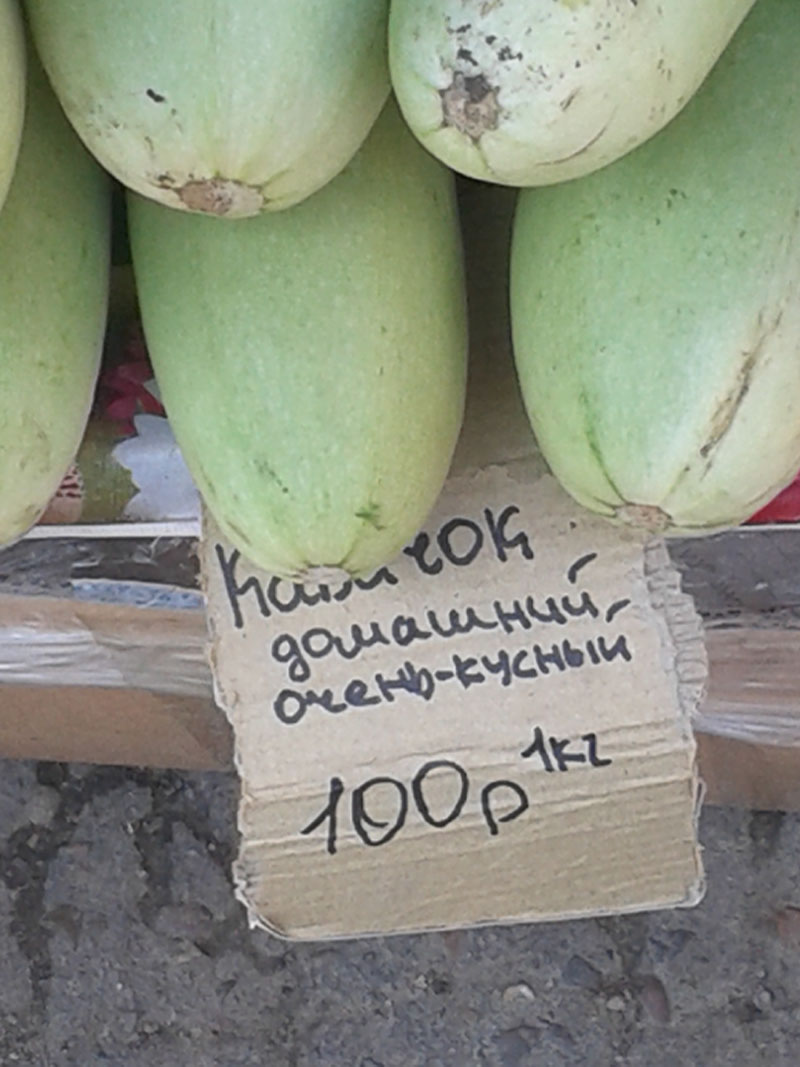 Кабачок
домашний,
очень-кусный
100р 1кг